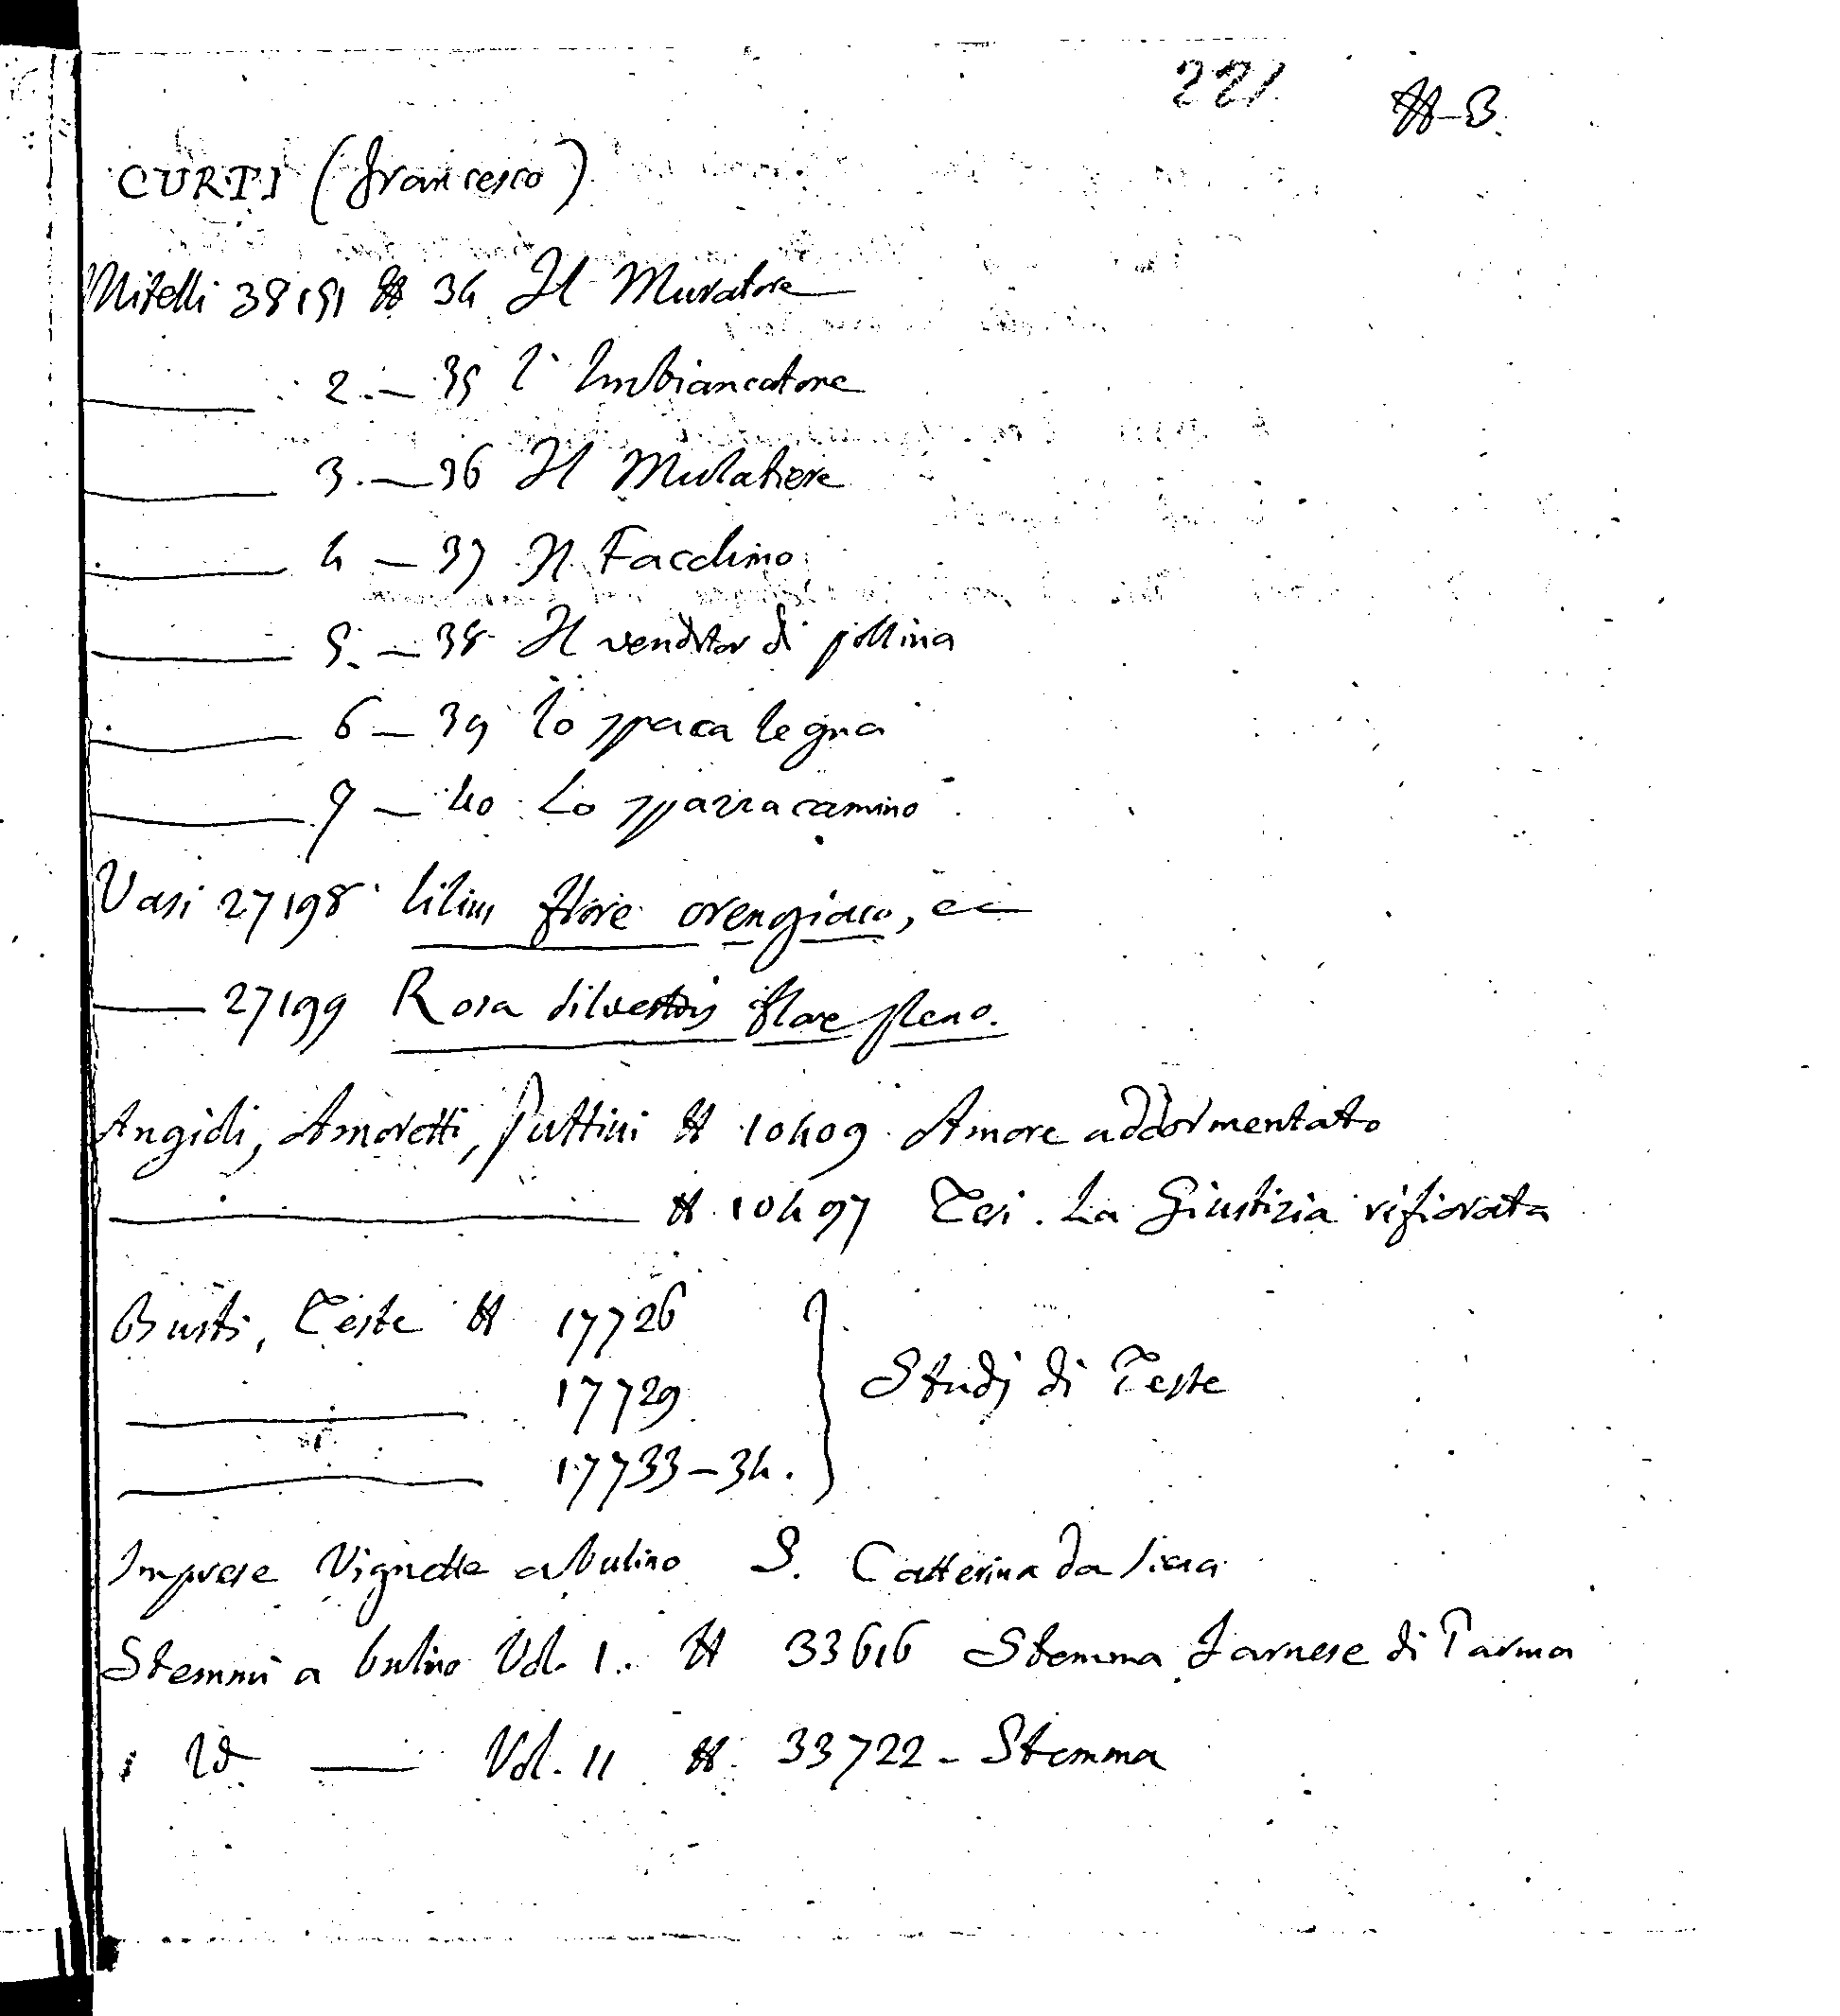 221 #-3
CURTI (Francesco)
Mitelli 38151 # 34 Il Muratore
——— 2.— 35 l'Imbiancatore
——— 3.— 36 Il Mulatiere
——— 4 — 37 Il Facchino
——— 5.— 38 Il venditor di pollina
——— 6 — 39 lo spaca legna
——— 7 — 40 Lo spazzacamino
Vasi 27198 lilium flore orengiaco, ec
—— 27199 Rosa silvestris flore pleno.
Angioli, Amoretti, Puttini # 10409 Amore addormentato
——— # 10497 Tesi. La Giustizia rifiorata
Busti, Teste # 17726
——— 17729 } Studj di Teste
——— 17733-34.
Imprese Vignette a bulino S. Catterina da Siena
Stemmi a bulino Vol. I. # 33616 Stemma Farnese di Parma
Id —— Vol. II # 33722 - Stemma